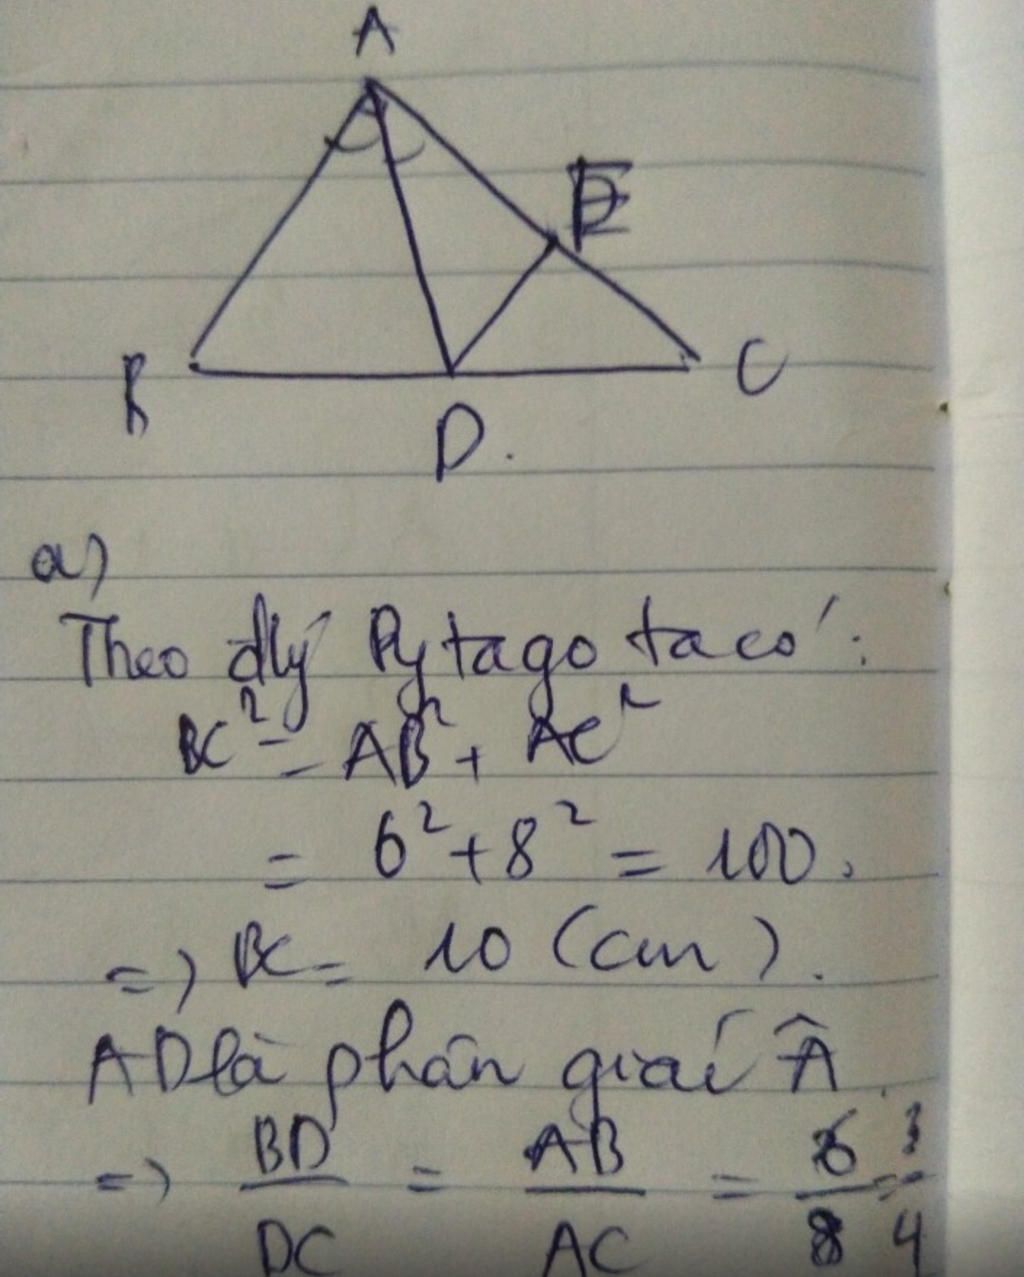 A
E
B
C
D.
a)
Theo đlý Pytago ta có:
BC² = AB² + AC²
= 6² + 8² = 100.
=) BC = 10 (cm).
AD là phân giaí Â.
=) BD/DC = AB/AC = 6/8 = 3/4